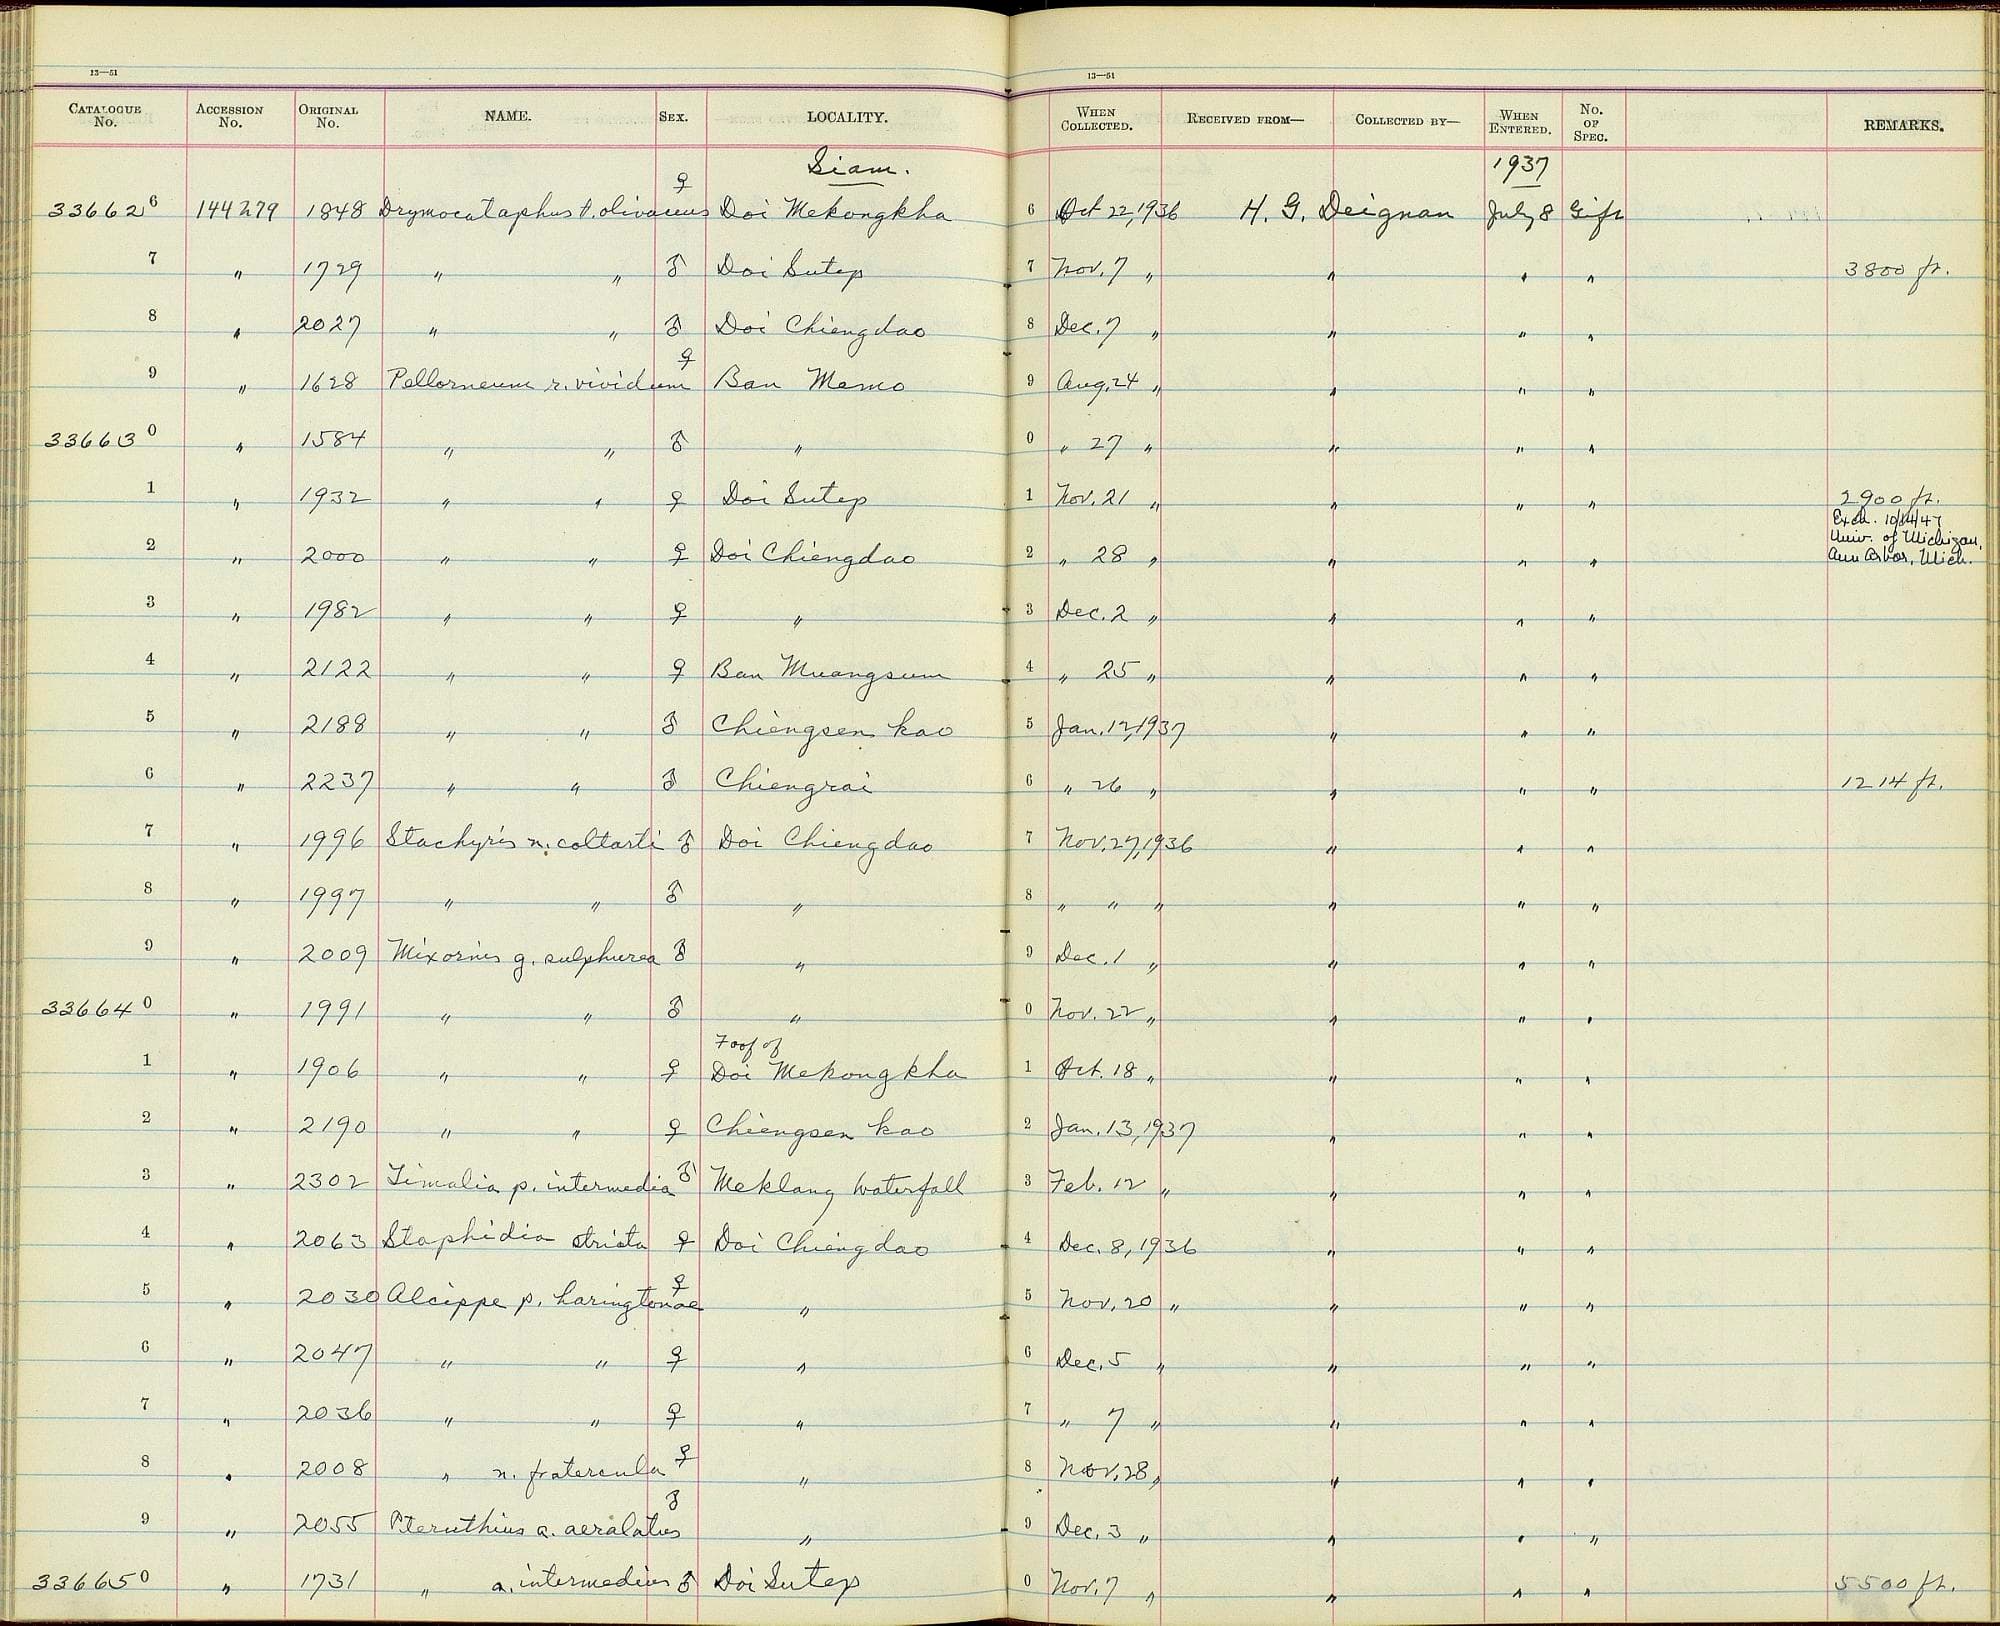 13—51
13—51
CATALOGUE No. ACCESSION No. ORIGINAL No. NAME. SEX. LOCALITY. WHEN COLLECTED. RECEIVED FROM— COLLECTED BY— WHEN ENTERED. NO. OF SPEC. REMARKS.
Siam. 1937
336626 144279 1848 Drymocataphus t. olivaceus ♀ Doi Mekongkha 6 Oct 22, 1936 H. G. Deignan July 8 Gift
7 " 1729 " " ♂ Doi Sutep 7 Nov. 7 " " " " 3800 ft.
8 " 2027 " " ♂ Doi Chiengdao 8 Dec. 7 " " " "
9 " 1628 Pellorneum r. vividum ♀ Ban Memo 9 Aug. 24 " " " "
336630 " 1584 " " ♂ " 0 " 27 " " " "
1 " 1932 " " ♀ Doi Sutep 1 Nov. 21 " " " " 2900 ft.
2 " 2000 " " ♀ Doi Chiengdao 2 " 28 " " " " Exch. 10/14/47 Univ. of Michigan, Ann Arbor, Mich.
3 " 1982 " " ♀ " 3 Dec. 2 " " " "
4 " 2122 " " ♀ Ban Muangsum 4 " 25 " " " "
5 " 2188 " " ♂ Chiengsen kao 5 Jan. 12, 1937 " " "
6 " 2237 " " ♂ Chiengrai 6 " 26 " " " " 1214 ft.
7 " 1996 Stachyris n. coltarti ♂ Doi Chiengdao 7 Nov. 27, 1936 " " "
8 " 1997 " " ♂ " 8 " " " " " "
9 " 2009 Mixornis g. sulphurea ♂ " 9 Dec. 1 " " " "
336640 " 1991 " " ♂ " 0 Nov. 22 " " " "
1 " 1906 " " ♀ Foof of Doi Mekongkha 1 Oct. 18 " " " "
2 " 2190 " " ♀ Chiengsen kao 2 Jan. 13, 1937 " " "
3 " 2302 Timalia p. intermedia ♂ Meklang Waterfall 3 Feb. 12 " " " "
4 " 2063 Staphidia striata ♀ Doi Chiengdao 4 Dec. 8, 1936 " " "
5 " 2030 Alcippe p. haringtonae ♀ " 5 Nov. 20 " " " "
6 " 2047 " " ♀ " 6 Dec. 5 " " " "
7 " 2036 " " ♀ " 7 " 7 " " " "
8 " 2008 " n. fratercula ♀ " 8 Nov. 28 " " " "
9 " 2055 Pteruthius a. aeralatus ♂ " 9 Dec. 3 " " " "
336650 " 1731 " a. intermedius ♂ Doi Sutep 0 Nov. 7 " " " " 5500 ft.